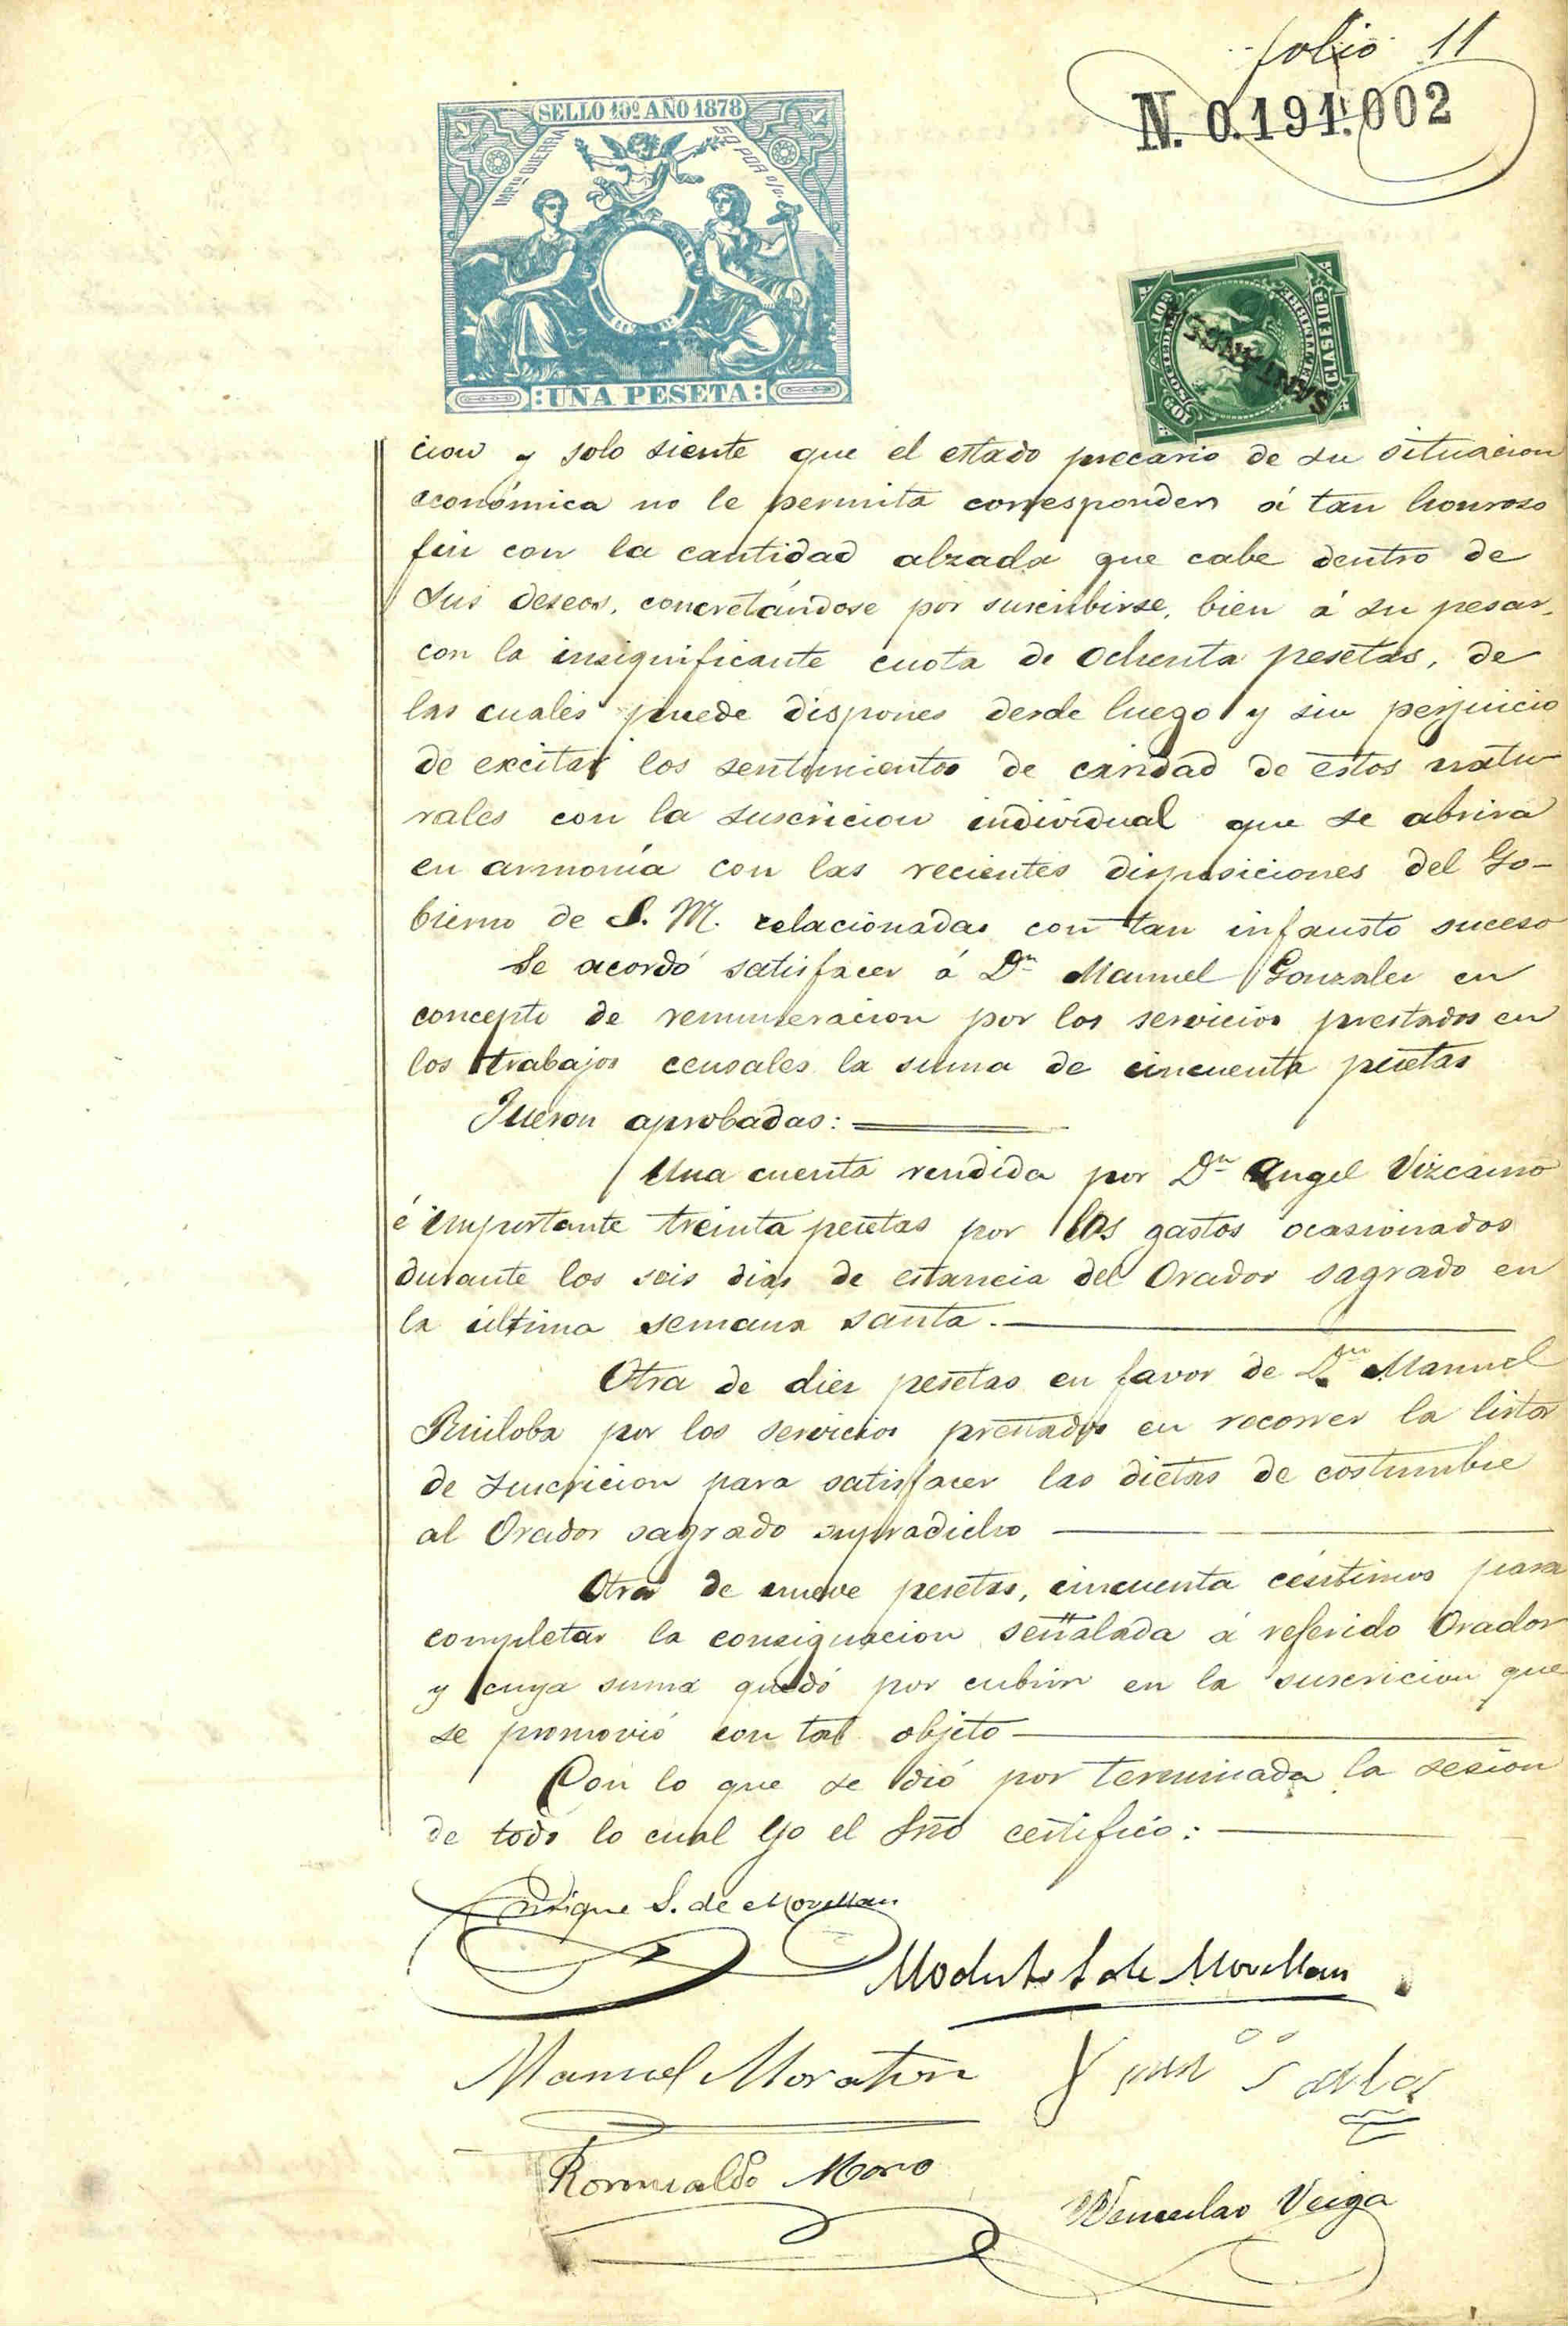 folio 11
N. 0.191.002
SELLO 10º AÑO 1878
IMPtº GUERRA
50 POR o/o
UNA PESETA
SANTANDER
cion y solo siente que el estado precario de su situacion
económica no le permita corresponder á tan honroso
fin con la cantidad alzada que cabe dentro de
sus deseos, concretándose por suscribirse, bien á su pesar,
con la insignificante cuota de ochenta pesetas, de
las cuales puede disponer desde luego y sin perjuicio
de excitar los sentimientos de caridad de estos natu-
rales con la suscricion individual que se abrira
en armonía con las recientes disposiciones del Go-
bierno de S. M. relacionadas con tan infausto suceso
Se acordó satisfacer á Dn Manuel Gonzalez en
concepto de remuneracion por los servicios prestados en
los trabajos censales la suma de cincuenta pesetas
Fueron aprobadas:
Una cuenta rendida por Dn Angel Vizcaino
é importante treinta pesetas por los gastos ocasionados
durante los seis dias de estancia del Orador sagrado en
la última semana santa.
Otra de diez pesetas en favor de Dn Manuel
Ruiloba por los servicios prestados en recorrer la lista
de suscricion para satisfacer las dietas de costumbre
al Orador sagrado supradicho
Otra de nueve pesetas, cincuenta céntimos para
completar la consignacion señalada á referido Orador
y cuya suma quedó por cubrir en la suscricion que
se promovió con tal objeto
Con lo que se dió por terminada la sesion
de todo lo cual yo el Srio certifico:
Enrique S. de Movellan
Modesto S de Movellan
Manuel Moraton
Juan
Romualdo Moro
Wenceslao Veiga